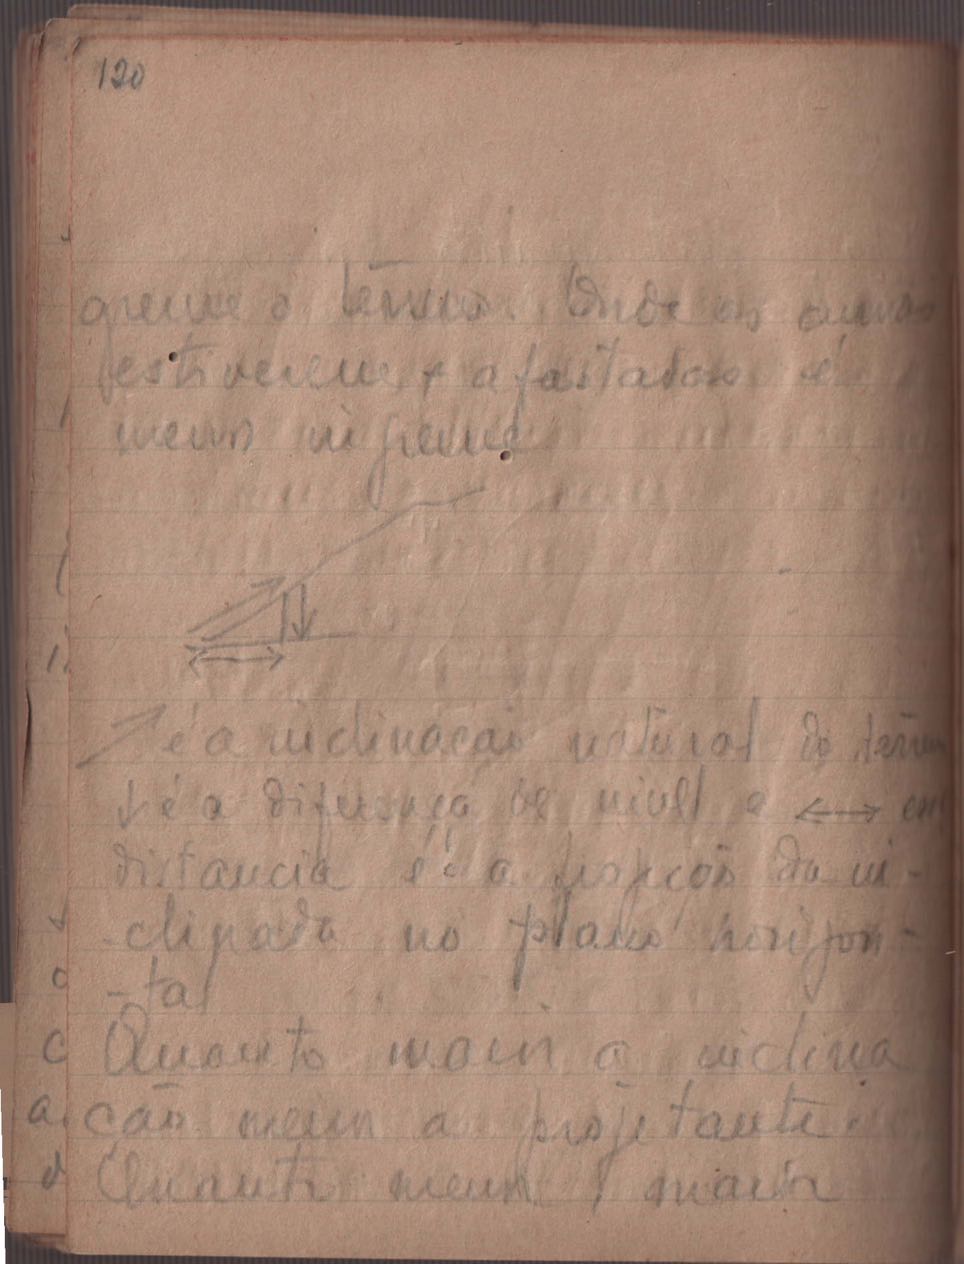 120
greme o terreno. Onde as curvas
estiverem + afastadas é
menos ingreme
é a inclinação natural do terreno
↓ é a diferença de nivel e ↔ em
distancia é a projeção da in-
-clinada no plano horizon-
-tal
Quanto maior a inclina
ção menor a projetante.
Quanto menor, maior